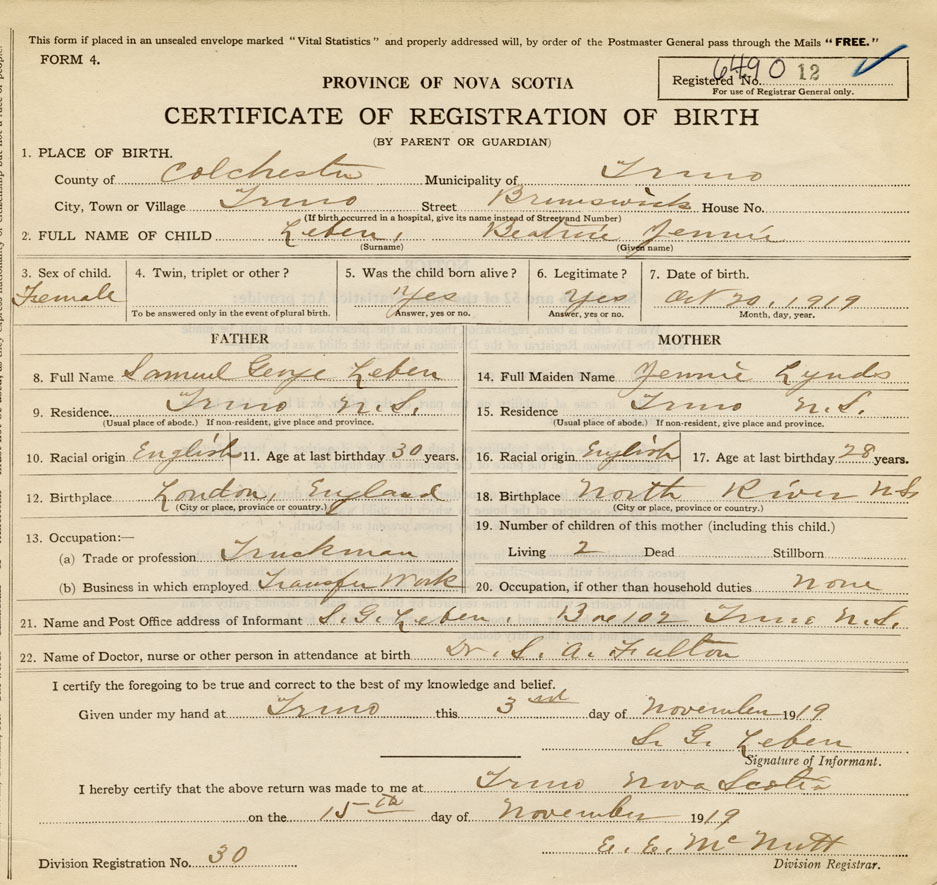 This form if placed in an unsealed envelope marked "Vital Statistics" and properly addressed will, by order of the Postmaster General pass through the Mails "FREE."
FORM 4.
Registered No. 6490 12
For use of Registrar General only.
PROVINCE OF NOVA SCOTIA
CERTIFICATE OF REGISTRATION OF BIRTH
(BY PARENT OR GUARDIAN)
1. PLACE OF BIRTH.
County of Colchester Municipality of Truro
City, Town or Village Truro Street Brunswick House No.
(If birth occurred in a hospital, give its name instead of Street and Number)
2. FULL NAME OF CHILD Leben, Beatrice Jennie
(Surname) (Given name)
3. Sex of child. 4. Twin, triplet or other? 5. Was the child born alive? 6. Legitimate? 7. Date of birth.
Female Yes Yes Oct 20, 1919
To be answered only in the event of plural birth. Answer, yes or no. Answer, yes or no. Month, day, year.
FATHER
8. Full Name Samuel George Leben
9. Residence. Truro N.S.
(Usual place of abode.) If non-resident, give place and province.
10. Racial origin English 11. Age at last birthday 30 years.
12. Birthplace London, England
(City or place, province or country.)
13. Occupation:—
(a) Trade or profession Truckman
(b) Business in which employed Transfer Work
MOTHER
14. Full Maiden Name Jennie Lynds
15. Residence Truro N.S.
(Usual place of abode.) If non-resident, give place and province.
16. Racial origin English 17. Age at last birthday 28 years.
18. Birthplace North River N.S.
(City or place, province or country.)
19. Number of children of this mother (including this child.)
Living 2 Dead Stillborn
20. Occupation, if other than household duties None
21. Name and Post Office address of Informant S. G. Leben, Box 102 Truro N.S.
22. Name of Doctor, nurse or other person in attendance at birth Dr. S. A. Fulton
I certify the foregoing to be true and correct to the best of my knowledge and belief.
Given under my hand at Truro this 3rd day of November 1919
S. G. Leben
Signature of Informant.
I hereby certify that the above return was made to me at Truro Nova Scotia
on the 15th day of November 1919
E. E. McNutt
Division Registration No. 30 Division Registrar.